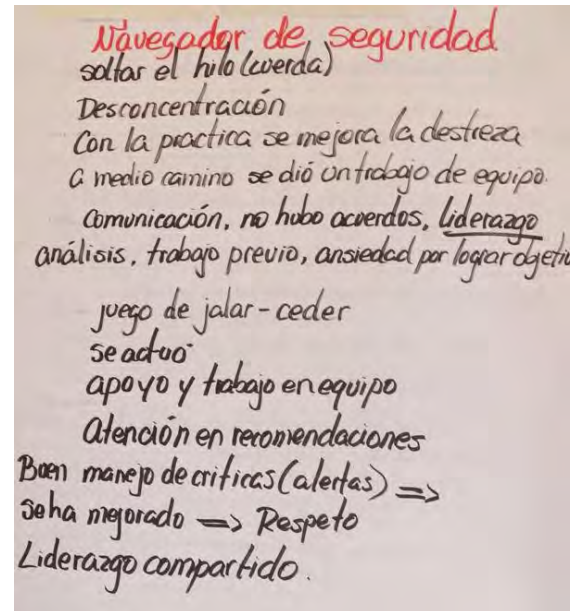 Návegador de seguridad
soltar el hilo (cuerda)
Desconcentración
Con la practica se mejora la destreza
a medio camino se dió un trabajo de equipo.
Comunicación, no hubo acuerdos, liderazgo
análisis, trabajo previo, ansiedad por lograr objetiv
juego de jalar - ceder
se actuo
apoyo y trabajo en equipo
Atención en recomendaciones
Buen manejo de criticas (alertas) =>
se ha mejorado => Respeto
Liderazgo compartido.